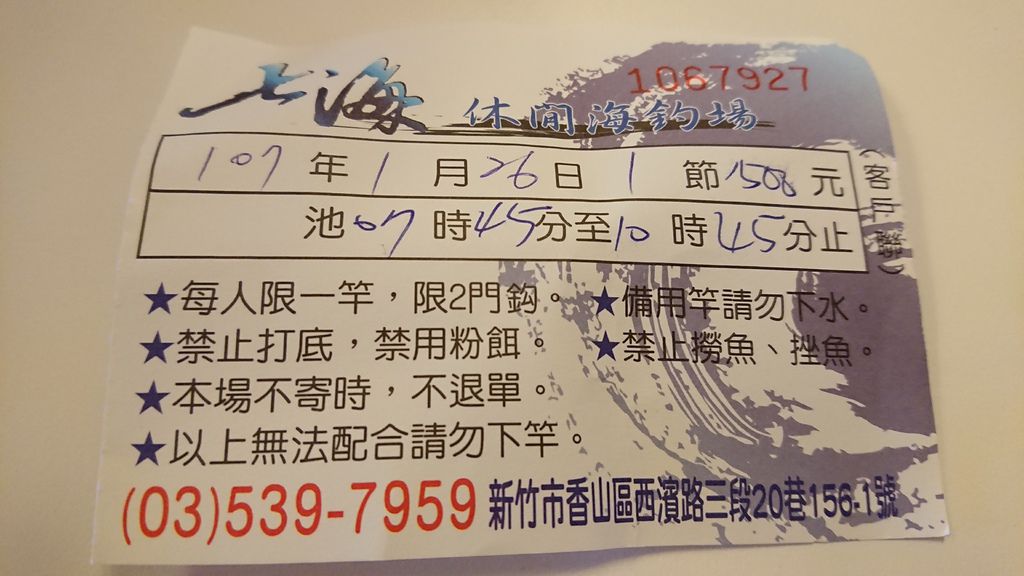 1067927
上海 休閒海釣場
107年1月26日1節1500元
池07時45分至10時45分止
(客戶聯)
★每人限一竿，限2門鈎。 ★備用竿請勿下水。
★禁止打底，禁用粉餌。 ★禁止撈魚、挫魚。
★本場不寄時，不退單。
★以上無法配合請勿下竿。
(03)539-7959 新竹市香山區西濱路三段20巷156-1號